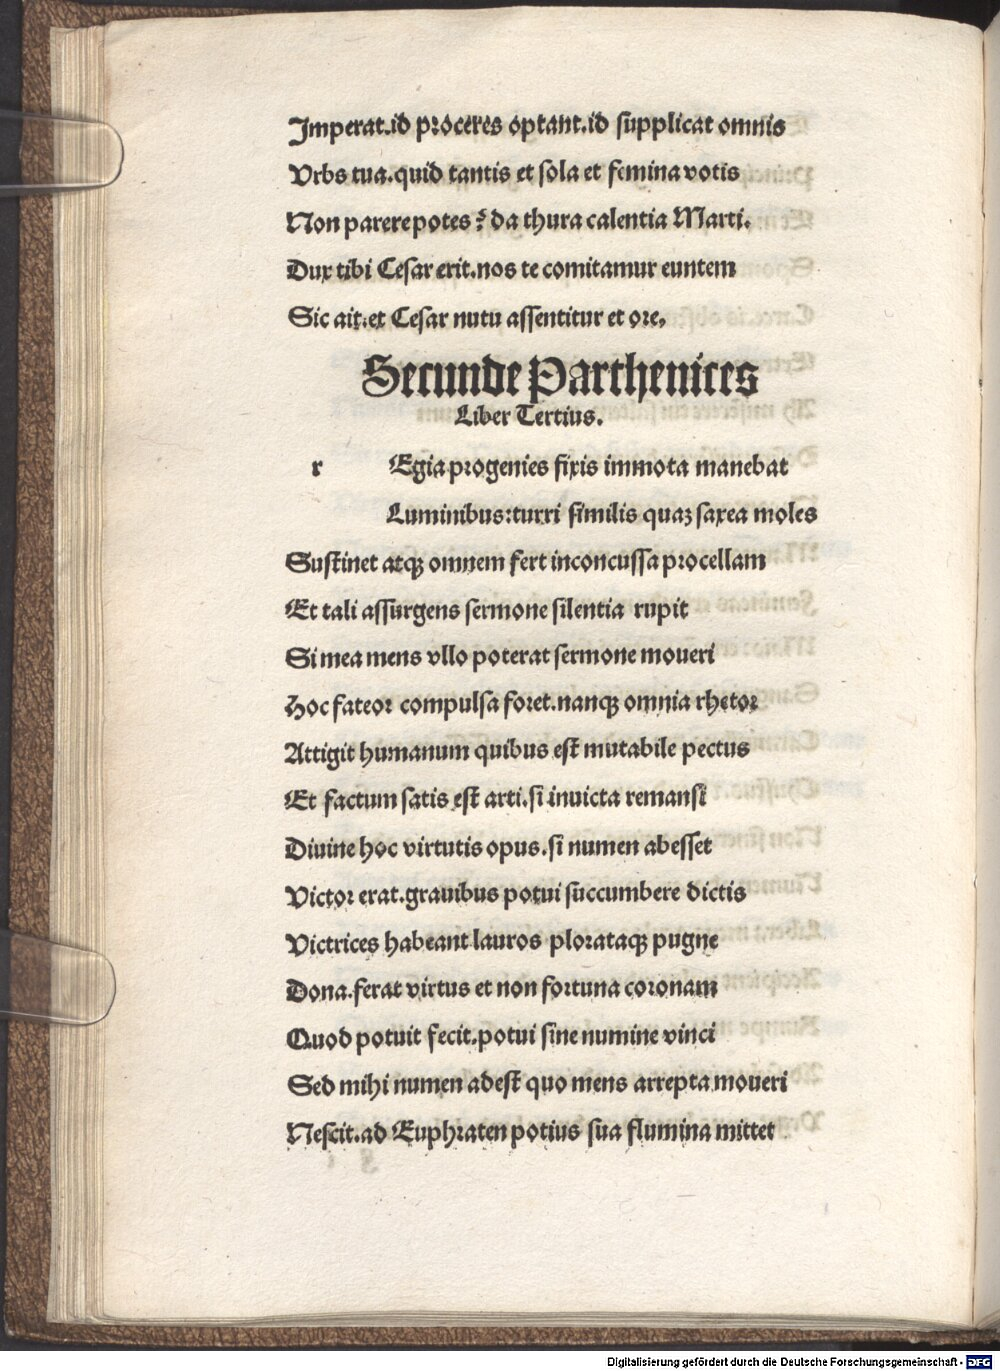 Imperat.id proceres optant.id supplicat omnis
Vrbs tua.quid tantis et sola et femina votis
Non parere potes? da thura calentia Marti.
Dux tibi Cesar erit.nos te comitamur euntem
Sic ait.et Cesar nutu assentitur et ore.
Secunde Parthenices
Liber Tertius.
r Egia progenies fixis immota manebat
Luminibus:turri similis quaꝫ saxea moles
Sustinet atqꝫ omnem fert inconcussa procellam
Et tali assurgens sermone silentia rupit
Si mea mens vllo poterat sermone moueri
Hoc fateor compulsa foret.nanqꝫ omnia rhetor
Attigit humanum quibus est mutabile pectus
Et factum satis est arti.si inuicta remansi
Diuine hoc virtutis opus.si numen abesset
Victor erat.grauibus potui succumbere dictis
Victrices habeant lauros plorataqꝫ pugne
Dona.ferat virtus et non fortuna coronam
Quod potuit fecit.potui sine numine vinci
Sed mihi numen adest quo mens arrepta moueri
Nescit.ad Euphraten potius sua flumina mittet
Digitalisierung gefördert durch die Deutsche Forschungsgemeinschaft - DFG